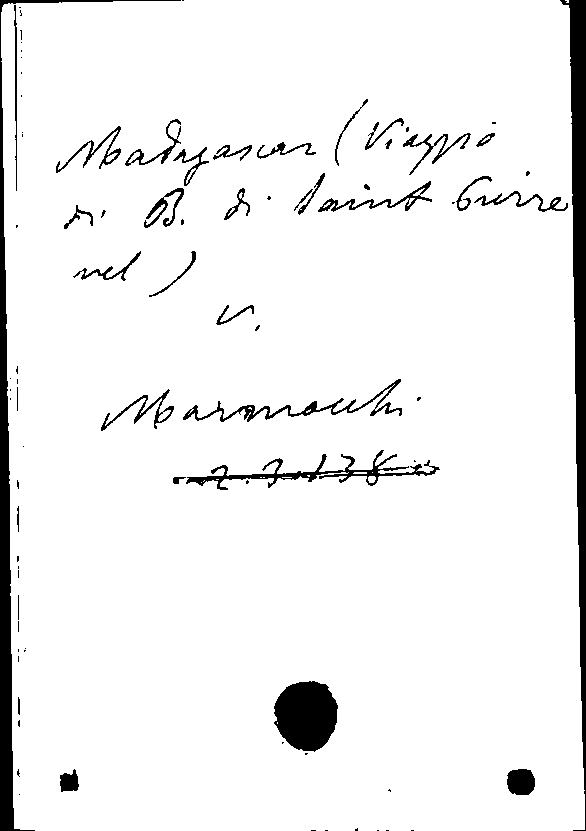 Madagascar (Viaggio
di B. di Saint Pierre
nel)
v.
Marmocchi
2.3.138